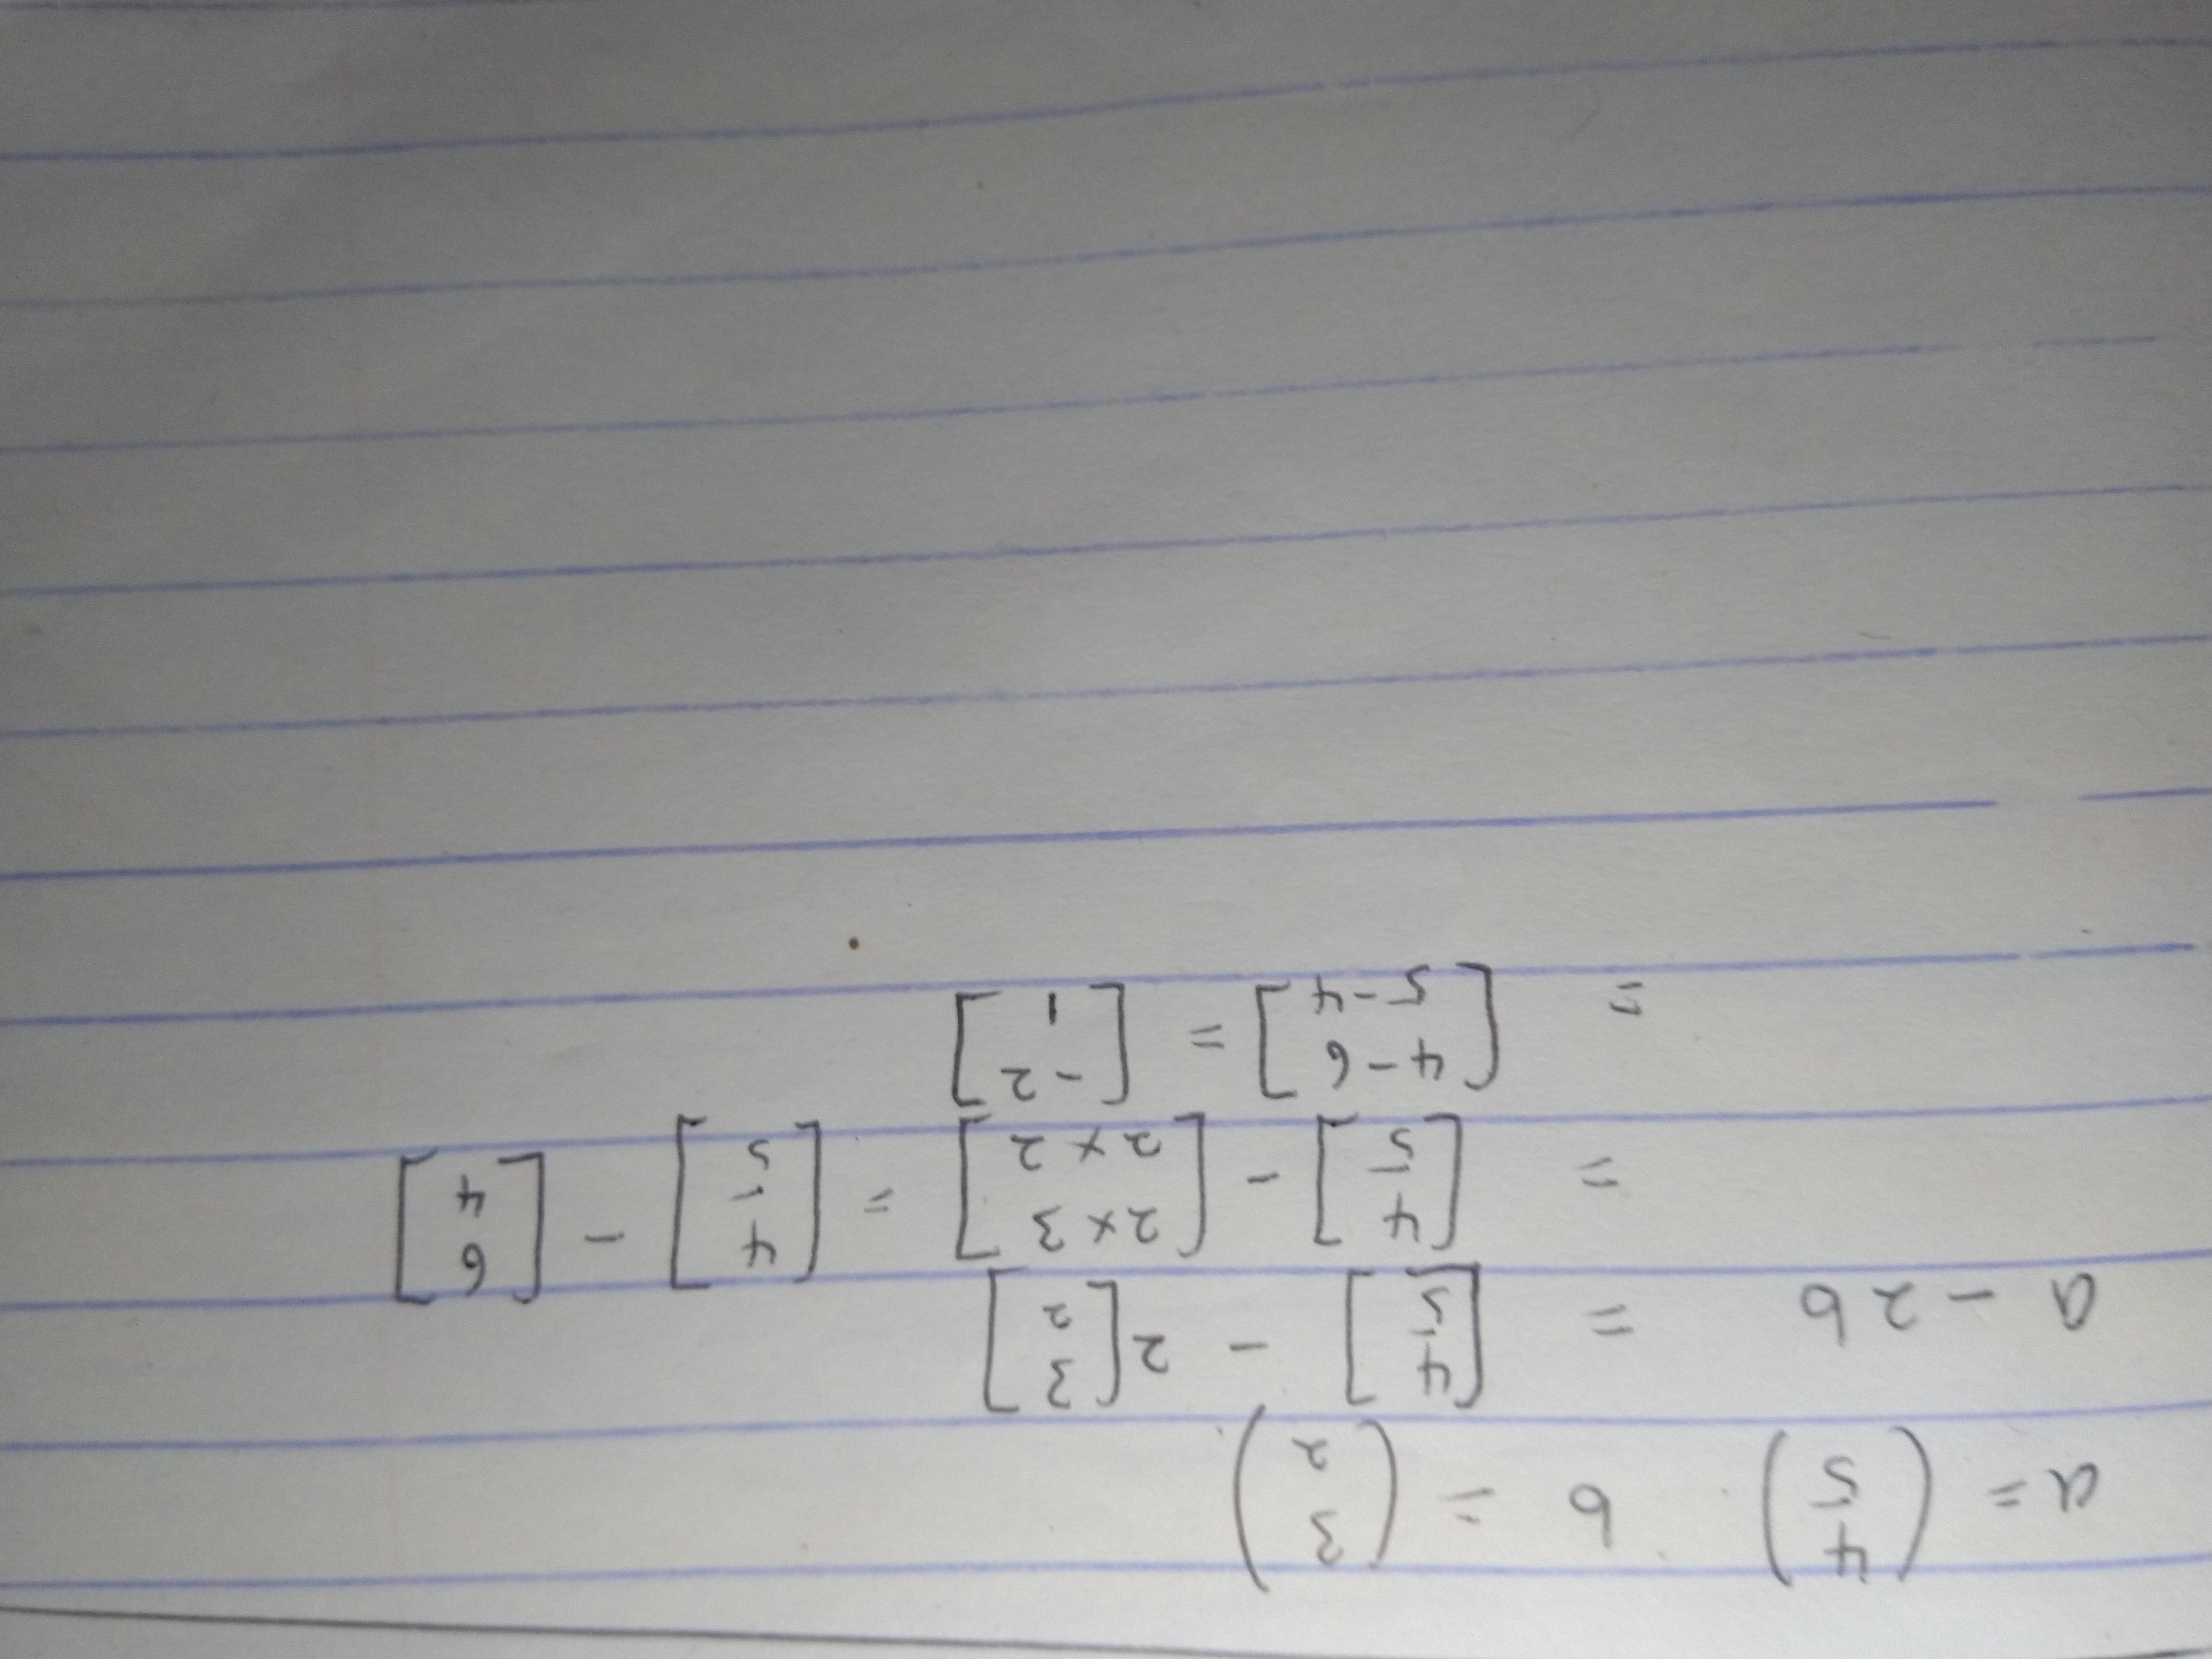 a = (4 5) b = (3 2)
a - 2b = [4 5] - 2[3 2]
= [4 5] - [2x3 2x2] = [4 5] - [6 4]
= [4-6 5-4] = [-2 1]